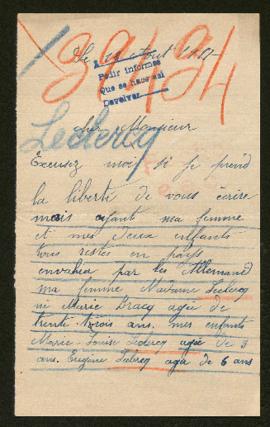 39491
Août
Pedir informes
Que se hace aqui
Devolver
Leclercq
Monsieur
Excusez moi si je prend
la liberté de vous écrire
mais ayant ma femme
et mes deux enfants
tous restés en pays
envahies par les Allemand
ma femme Madame Leclercq
né Marie Dracq agée de
trente trois ans. mes enfants
Marie-Louise Leclercq agée de 3
ans. Eugène Leclercq agé de 6 ans